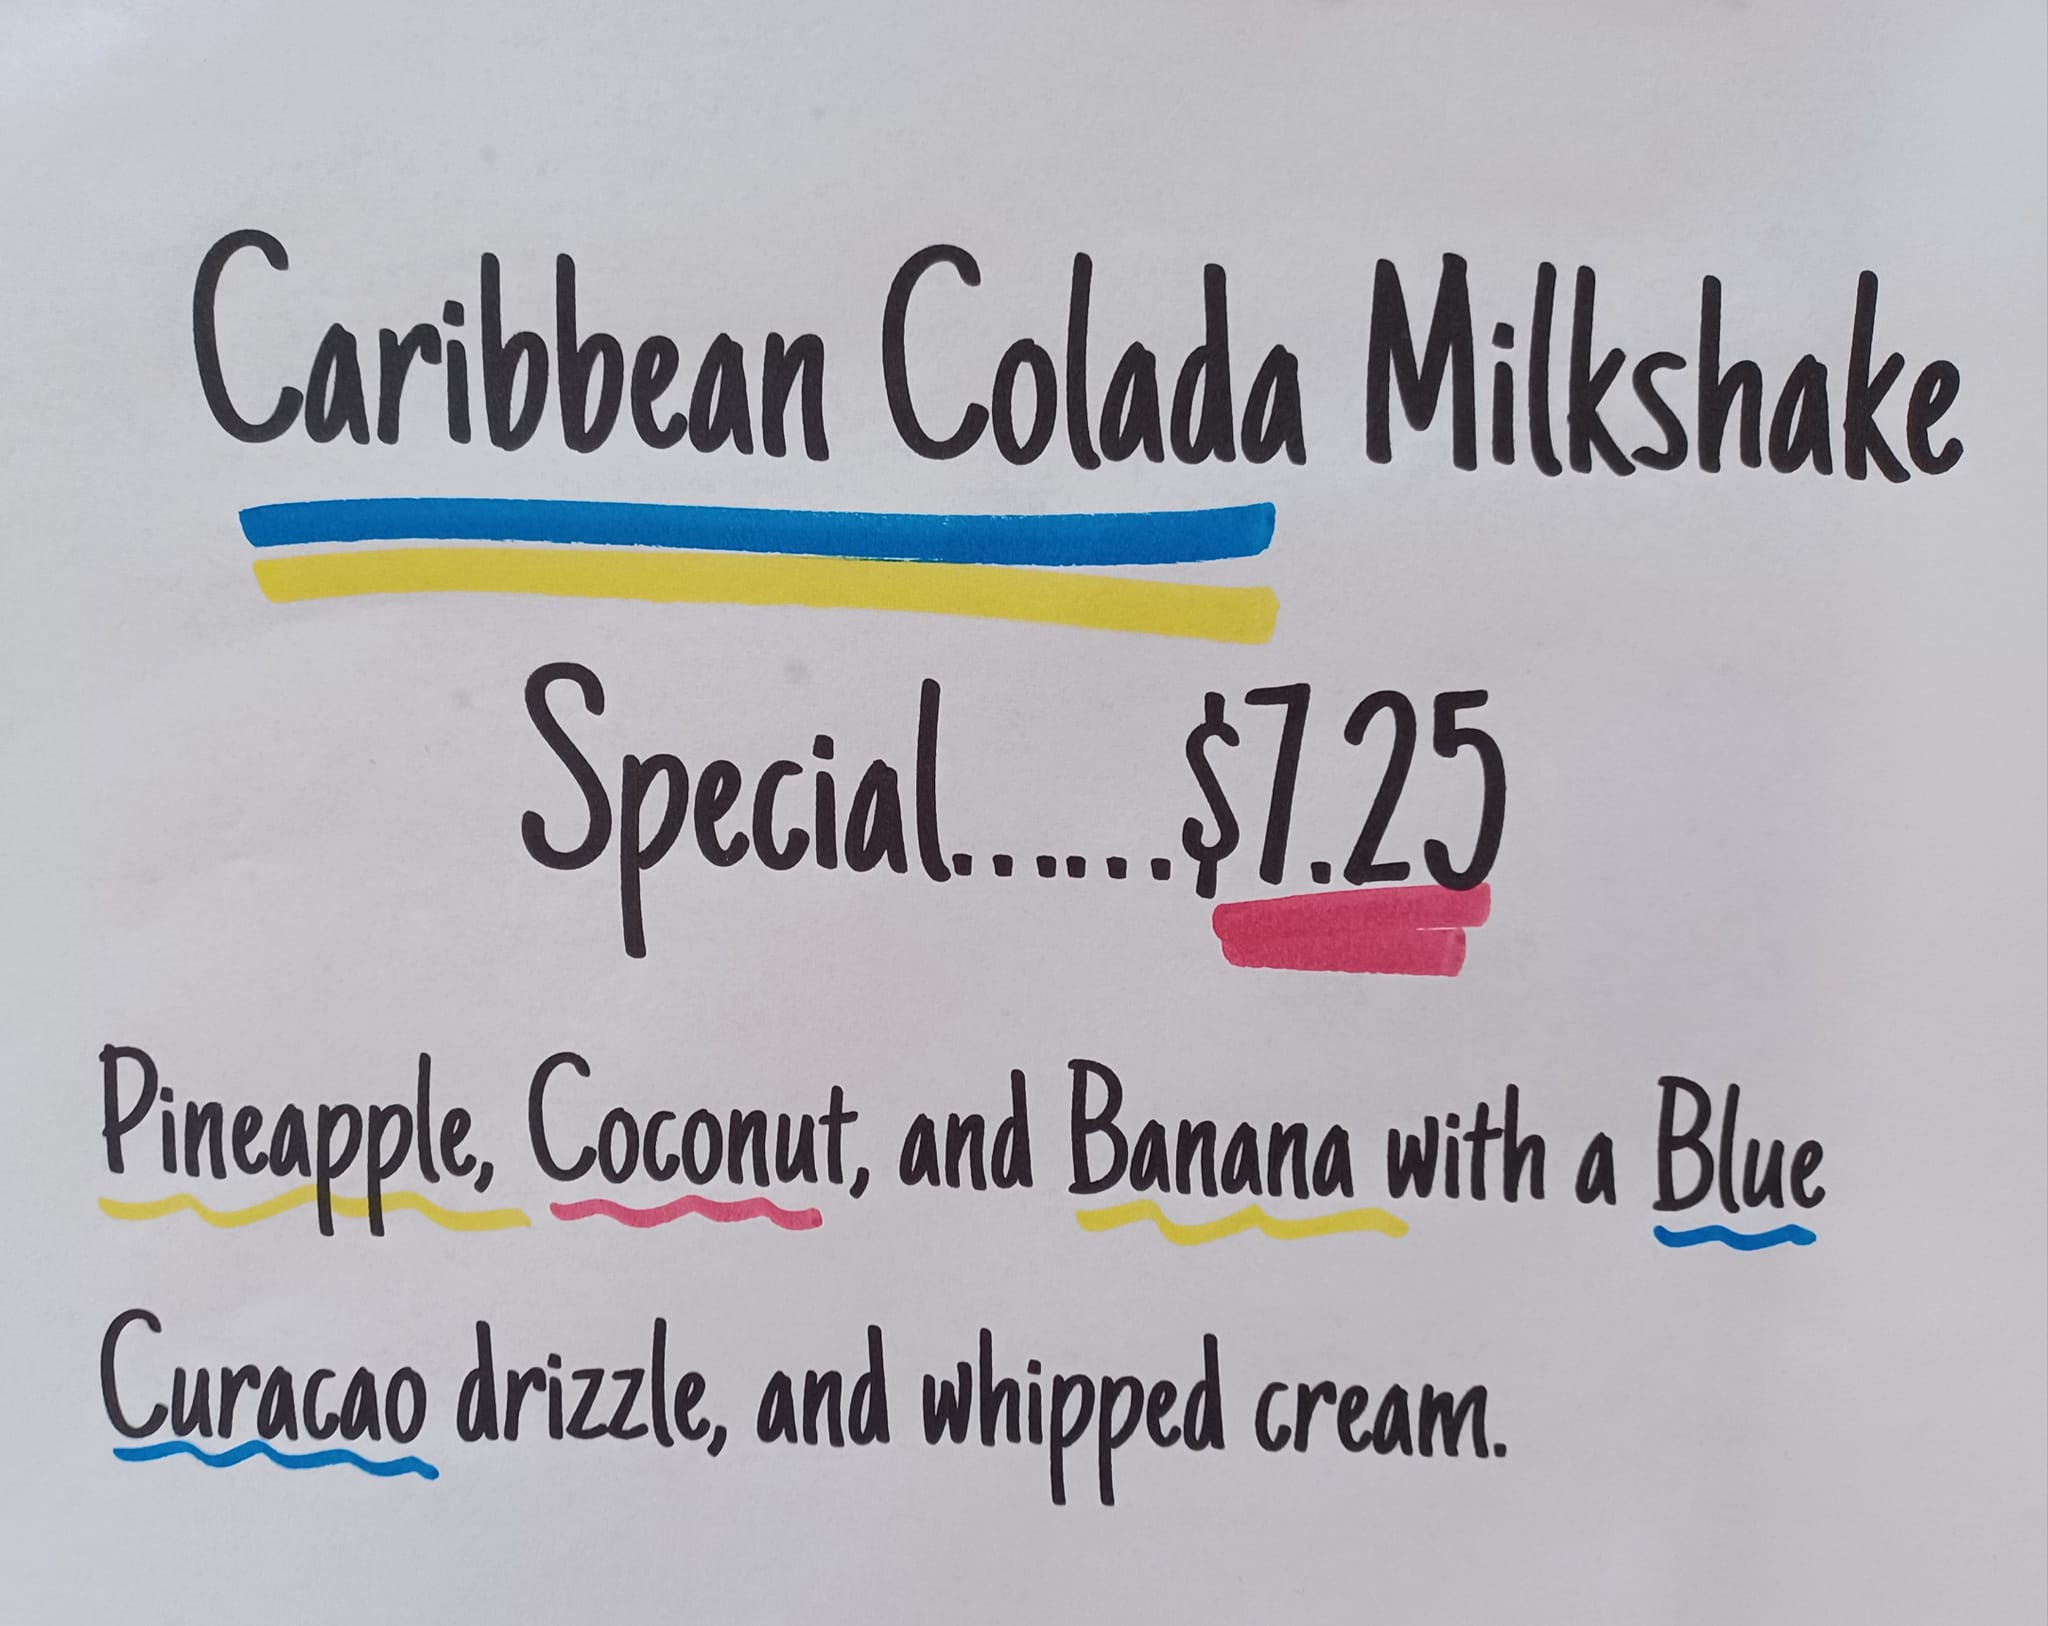 Caribbean Colada Milkshake
Special.......$7.25
Pineapple, Coconut, and Banana with a Blue
Curacao drizzle, and whipped cream.